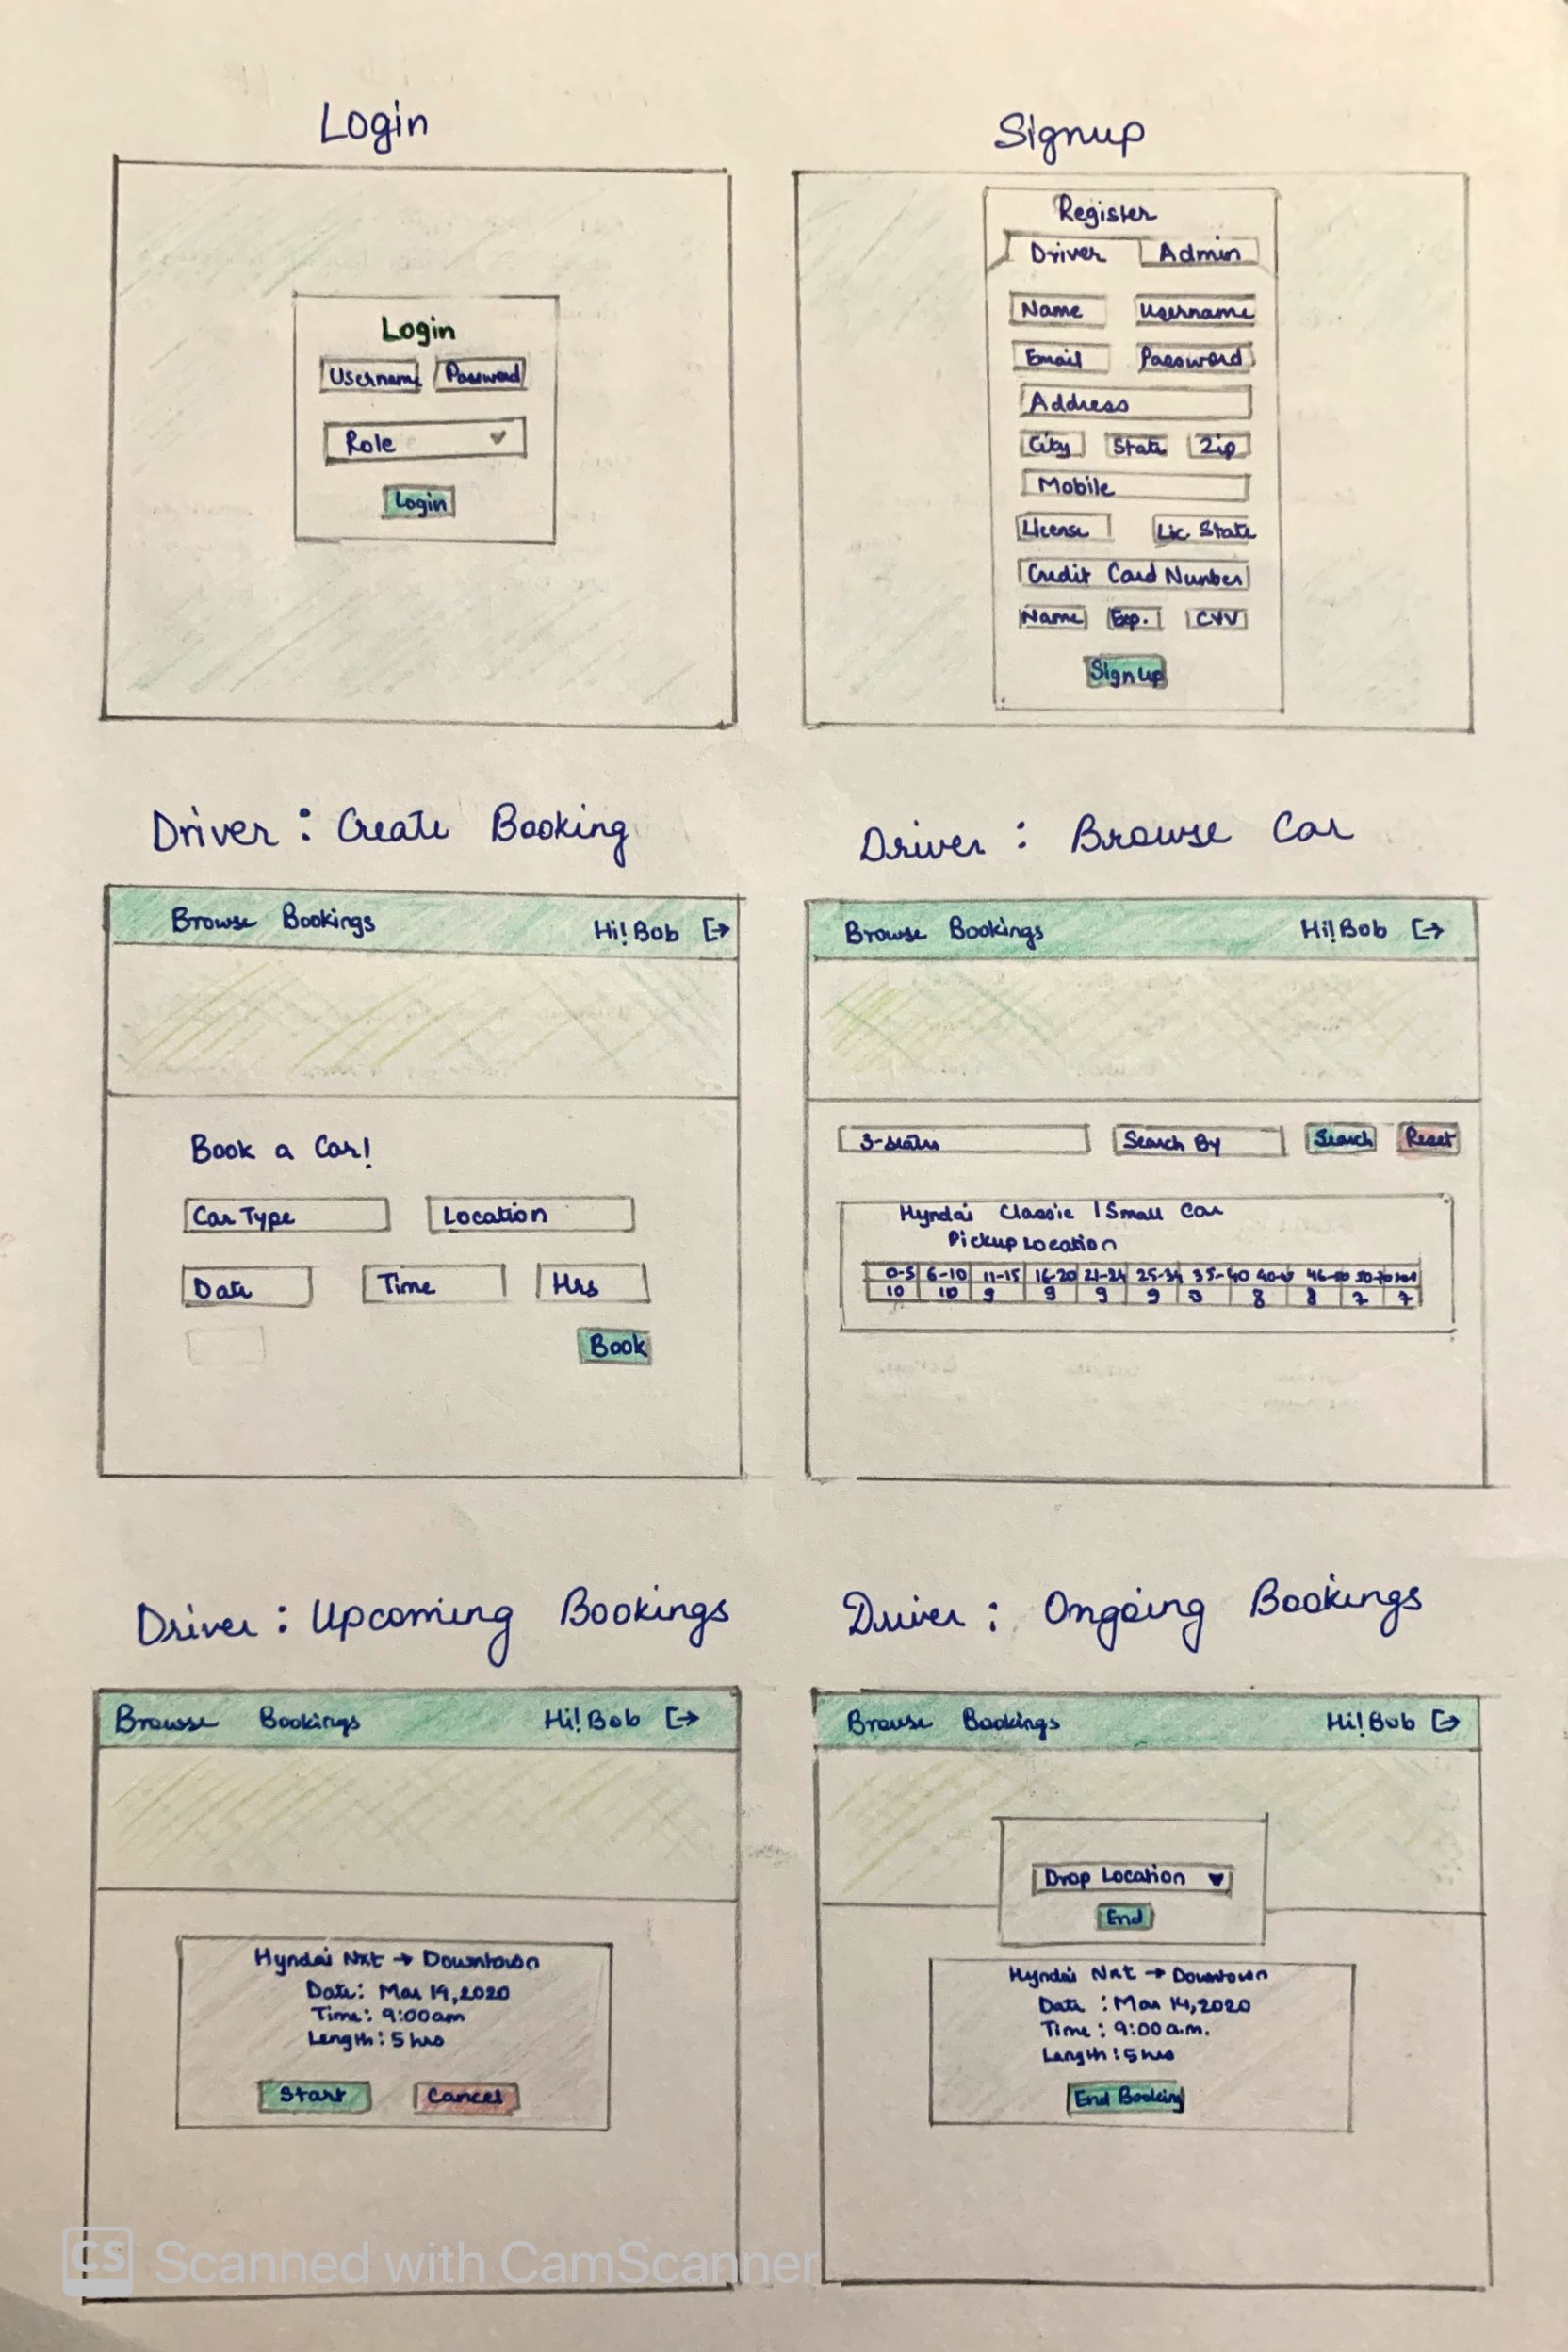 Login
Login
Username Password
Role
Login
Signup
Register
Driver Admin
Name Username
Email Password
Address
City State Zip
Mobile
License Lic. State
Credit Card Number
Name Exp. CVV
Signup
Driver : Create Booking
Browse Bookings Hi! Bob
Book a Car!
Car Type Location
Date Time Hrs
Book
Driver : Browse Car
Browse Bookings Hi! Bob
Search By Search Reset
Hyndai Classic | Small Car
Pickup Location
0-5 6-10 11-15 16-20 21-24 25-34 35-40
10 10 9 9 9 9 8 8 7 7
Driver : Upcoming Bookings
Browse Bookings Hi! Bob
Hyndai Nxt → Downtown
Date: Mar 14, 2020
Time: 9:00am
Length: 5 hrs
Start Cancel
Driver : Ongoing Bookings
Browse Bookings Hi! Bob
Drop Location
End
Hyndai Nxt → Downtown
Date : Mar 14, 2020
Time : 9:00 a.m.
Length : 5 hrs
End Booking
CS Scanned with CamScanner